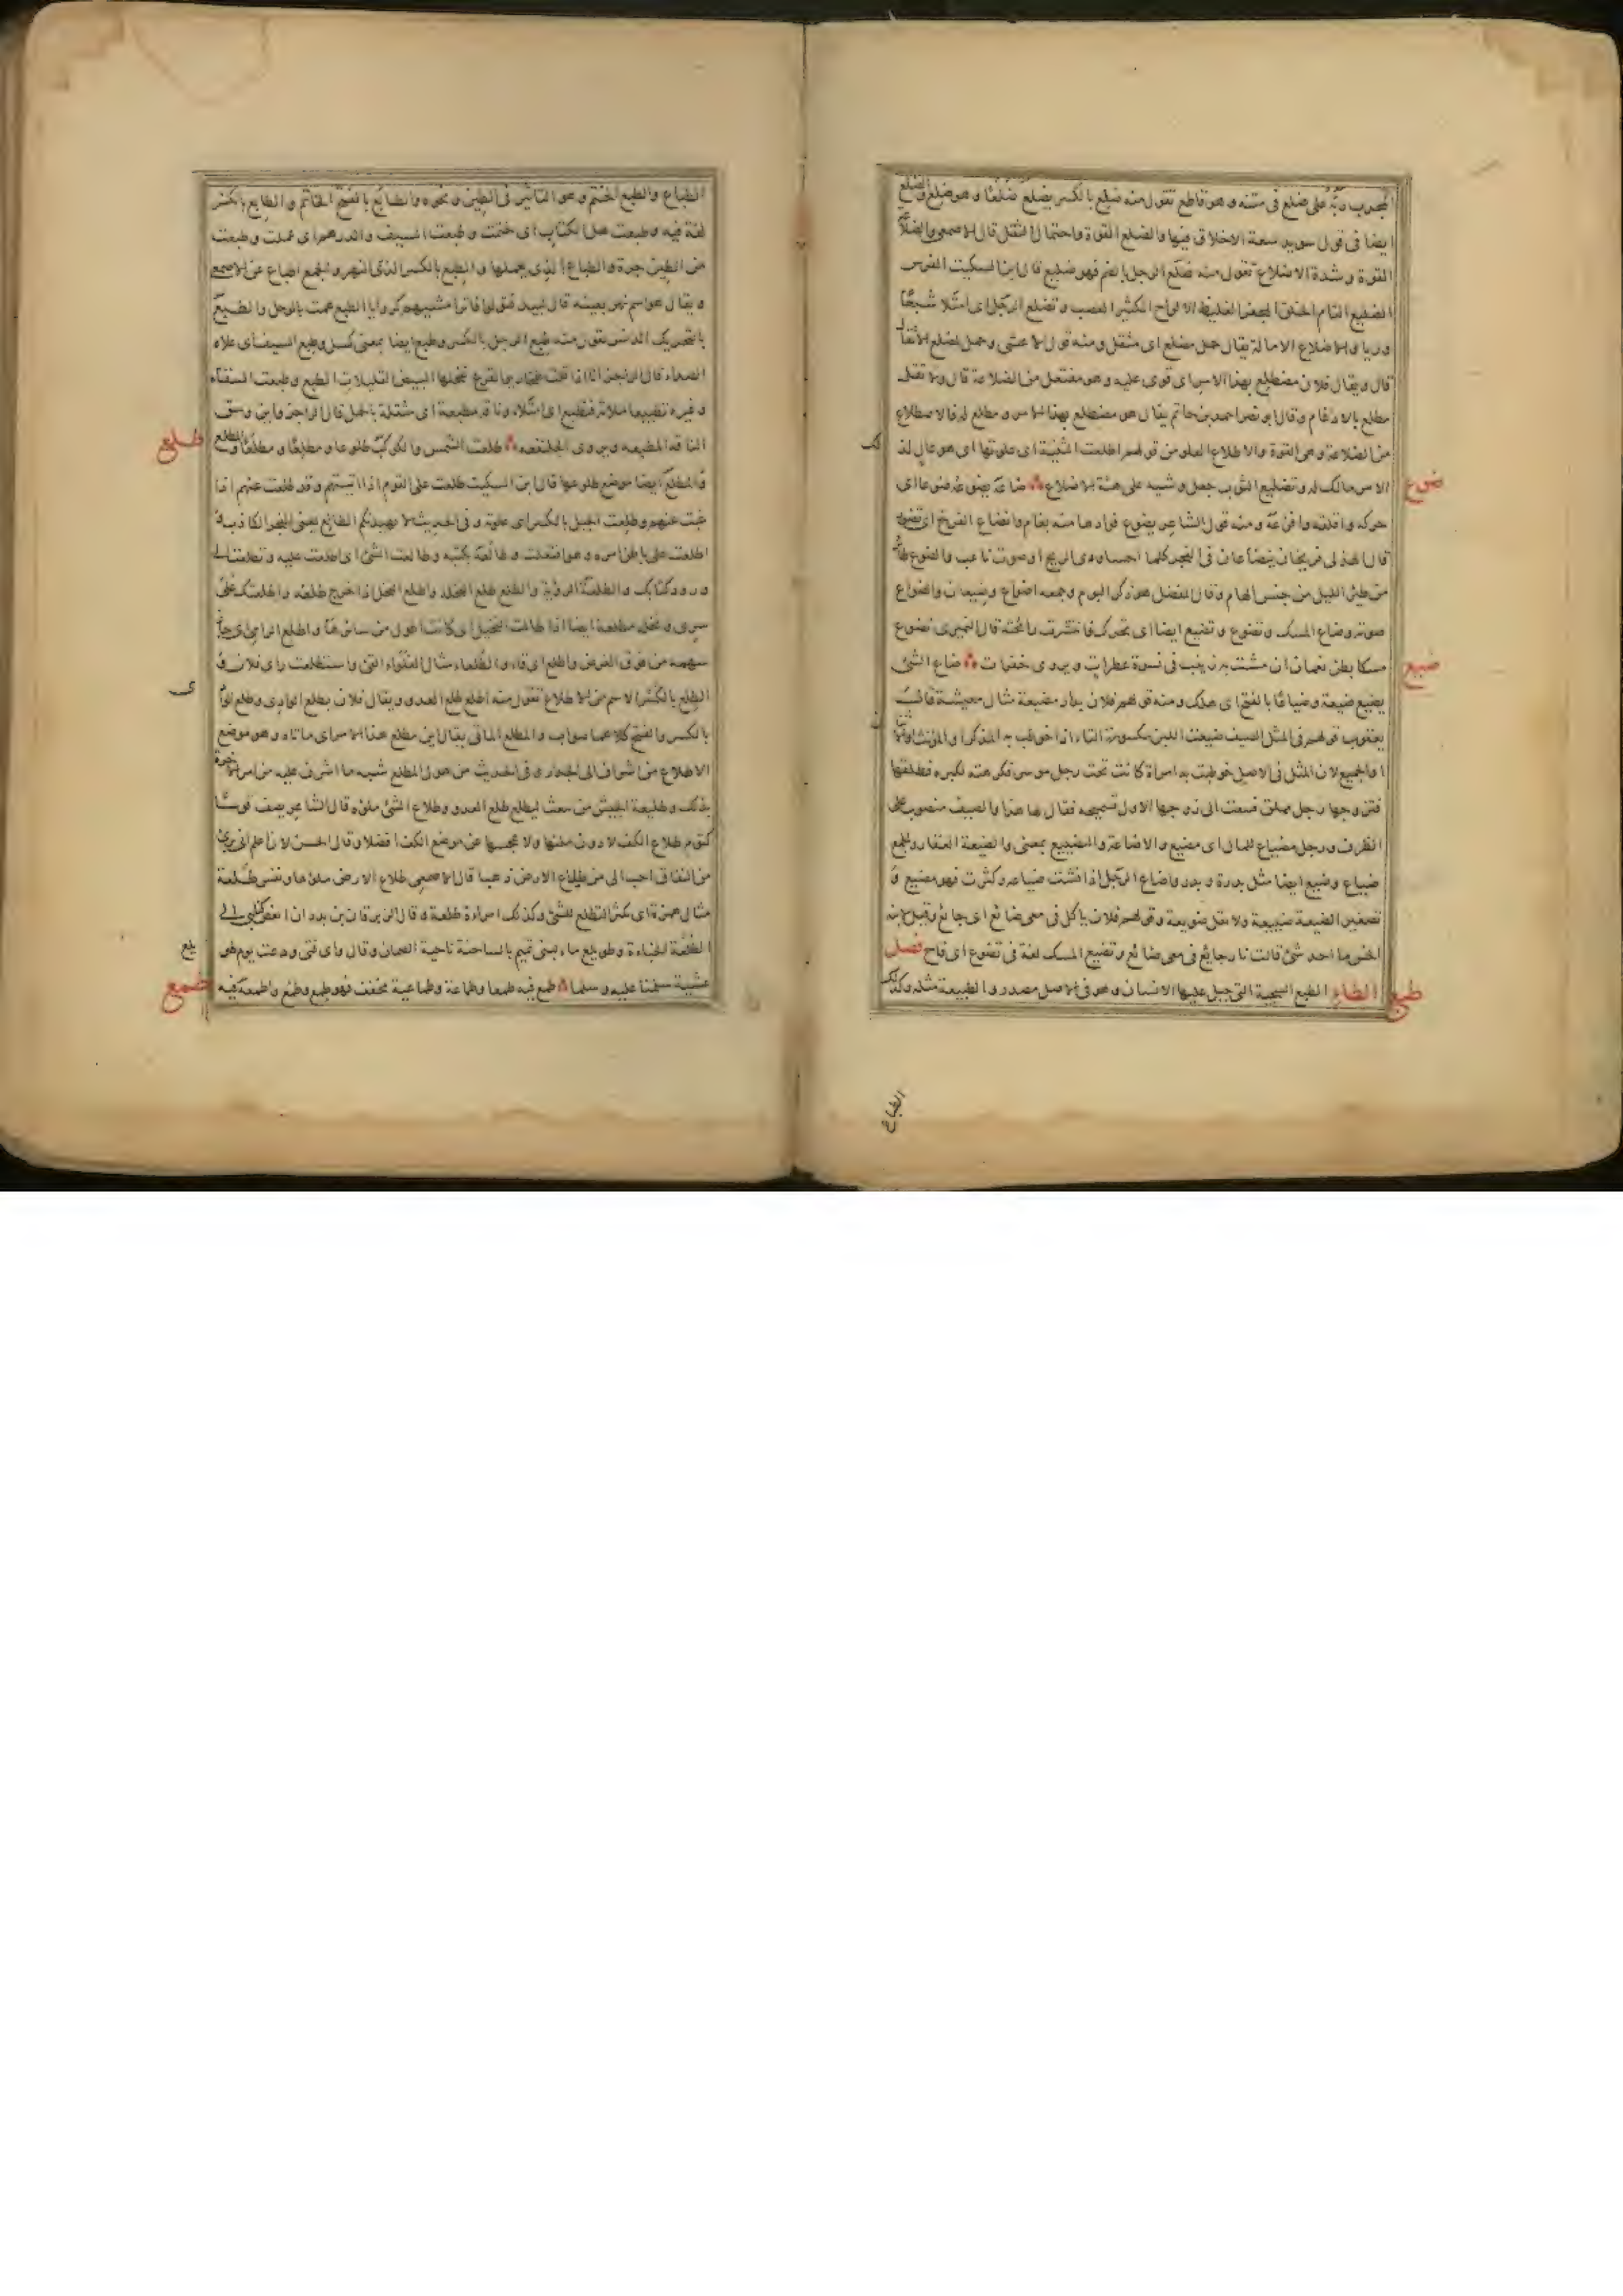 المجرب ربّه على ضلع فى متنه و هو قاطع تقول منه ضلع بالكسر يضلع ضلعًا و هو ضلع والضلع
ايضا فى قول سويد سعة الاخلاق فينا والضلع القوة واحتمال الثقل قال الاصمعى والضلاعة
القوة و شدة الاضلاع تقول منه ضلع الرجل بالضم فهو ضليع قال ابن السكيت الفرس
الضليع التام الخلق المجفر الغليظ الالواح الكثير العصب و تضلع الرجل اى امتلا شبعًا
وريا والاضلاع الامالة يقال حمل مضلع اى مثقل ومنه قول الاعشى وحمل لمضلع الاثقال
قال و يقال فلان مضطلع بهذا الامر اى قوى عليه و هو مفتعل من الضلاعة قال ولا تقل
مطلع بالادغام وقال ابو نصر احمد بن حاتم يقال هو مضطلع بهذا الامر و مطلع له فالاضطلاع
من الضلاعة وهى القوة والاطلاع العلو من قولهم اطلعت الثنية اى علوتها اى هو عال لذلك
الامر مالك له و تضليع الثوب جعل وشيه على هيئة الاضلاع ضاعه يضوعه ضوعا اى
ضوع
حركه واقلقه وافزعه ومنه قول الشاعر يضوع فؤادها منه بغام وانضاع الفرخ اى تضور
قال الهذلى فريخان ينضاعان فى الفجر كلما احسا دوى الريح او صوت ناعب والضوع طائر
من طير الليل من جنس الهام وقال المفضل هو ذكر البوم وجمعه اضواع وضيعان والضواع
صوته وضاع المسك وتضوع و تضيع ايضا اى تحرك فانتشرت رائحته قال النميرى تضوع
مسكا بطن نعمان ان مشت به زينب فى نسوة عطرات ويروى خفرات ضاع الشئ
ضيع
يضيع ضيعة و ضياعًا بالفتح اى هلك ومنه قولهم فلان بدار مضيعة مثال معيشة قال
يعقوب قولهم فى المثل الصيف ضيعت اللبن مكسورة التاء اذا خوطب به المذكر او المؤنث او الاثنان
او الجميع لان المثل فى الاصل خوطبت به امراة كانت تحت رجل موسر فكرهته لكبره فطلقها
فتزوجها رجل مملق فبعثت الى زوجها الاول تستميحه فقال لها هذا والصيف منصوب على
الظرف ورجل مضياع للمال اى مضيع والاضاعة والتضييع بمعنى والضيعة العقار والجمع
ضياع وضيع ايضا مثل بدرة و بدر واضاع الرجل اذا فشت ضياعه وكثرت فهو مضيع و
تصغير الضيعة ضييعة ولا تقل ضويعة وقولهم فلان ياكل فى معى ضائع اى جائع وقيل لابنة
الخس ما احد شئ قالت ناب جائع فى معى ضائع و تضيع المسك لغة فى تضوع اى فاح فصل
الطاء الطبع السجية التى جبل عليها الانسان وهو فى الاصل مصدر والطبيعة مثله وكذلك
طبع
الطباع
الطباع والطبع الختم وهو التاثير فى الطين و نحوه والطابع بالفتح الخاتم و الطابع بالكسر
لغة فيه و طبعت على الكتاب اى ختمت و طبعت السيف والدرهم اى عملت و طبعت
من الطين جرة والطباع الذى يعملها و الطبع بالكسر النهر والجمع اطباع عن الاصمعى
و يقال هو اسم نهر بعينه قال لبيد فتولوا فاترا مشيهم كروايا الطبع همت بالوحل والطبع
بالتحريك الدنس تقول منه طبع الرجل بالكسر وطبع ايضا بمعنى كسل وطبع السيف اى علاه
الصداء قال الراجز البيض القليلات الطبع و طبعت السقاء
و غيره تطبيعا ملاته فتطبع اى امتلاء وناقة مطبعة اى مثقلة بالحمل قال الراجز واين وسق
الناقة المطبعه ويروى الجلنفعه طلعت الشمس والكوكب طلوعا و مطلعًا و مطلعًا والمطلع
طلع
والمطلع ايضا موضع طلوعها قال ابن السكيت طلعت على القوم اذا اتيتهم وقد طلعت عنهم اذا
غبت عنهم و طلعت الجبل بالكسر اى علوته و فى الحديث لا يهيدنكم الطالع يعنى الفجر الكاذب
اطلعت على باطن امره و هو افتعلت و طالعه بكتبه و طالعت الشئ اى اطلعت عليه و تطلعت الى
ورود كتابك والطلعة الرؤية والطلع طلع النخلة واطلع النخل اذا خرج طلعه واطلعتك على
سرى و نخلة مطلعة ايضا اذا طالت النخيل اى كانت اطول من سائرها و اطلع الرامى اى جاز
سهمه من فوق الغرض واطلع اى قاء والطلعاء مثال الغلواء القئ واستطلعت راى فلان و
الطلع بالكسر الاسم من الاطلاع تقول منه اطلع طلع العدو ويقال فلان بطلع الوادى و طلع الوادى
بالكسر والفتح كلاهما صواب و المطلع الماتى يقال اين مطلع هذا الامر اى ماتاه و هو موضع
الاطلاع من اشراف الى انحدار و فى الحديث من هول المطلع شبه ما اشرف عليه من امر الاخرة
بذلك و طليعة الجيش من يبعث ليطلع طلع العدو و طلاع الشئ ملؤه قال الشاعر يصف قوسًا
كتوم طلاع الكف لا دون ملئها ولا عجسها عن موضع الكف افضلا وقال الحسن لان اعلم انى برئ
من النفاق احب الى من طلاع الارض ذهبا قال الاصمعى طلاع الارض ملؤها ونفس طلعة
مثال همزة اى تكثر التطلع للشئ وكذلك امراءة طلعة و قال الزبرقان بن بدر ان ابغض كنائنى الى
الطلعة الخباءة و طويلع ماء لبنى تميم بالشاجنة ناحية الصمان وقال واى فتى ودعت يوم طويلع
عشية سلمنا عليه و سلما طمع فيه طمعا وطماعة و طماعية مخفف فهو طمع وطمع واطمعه فيه
طمع